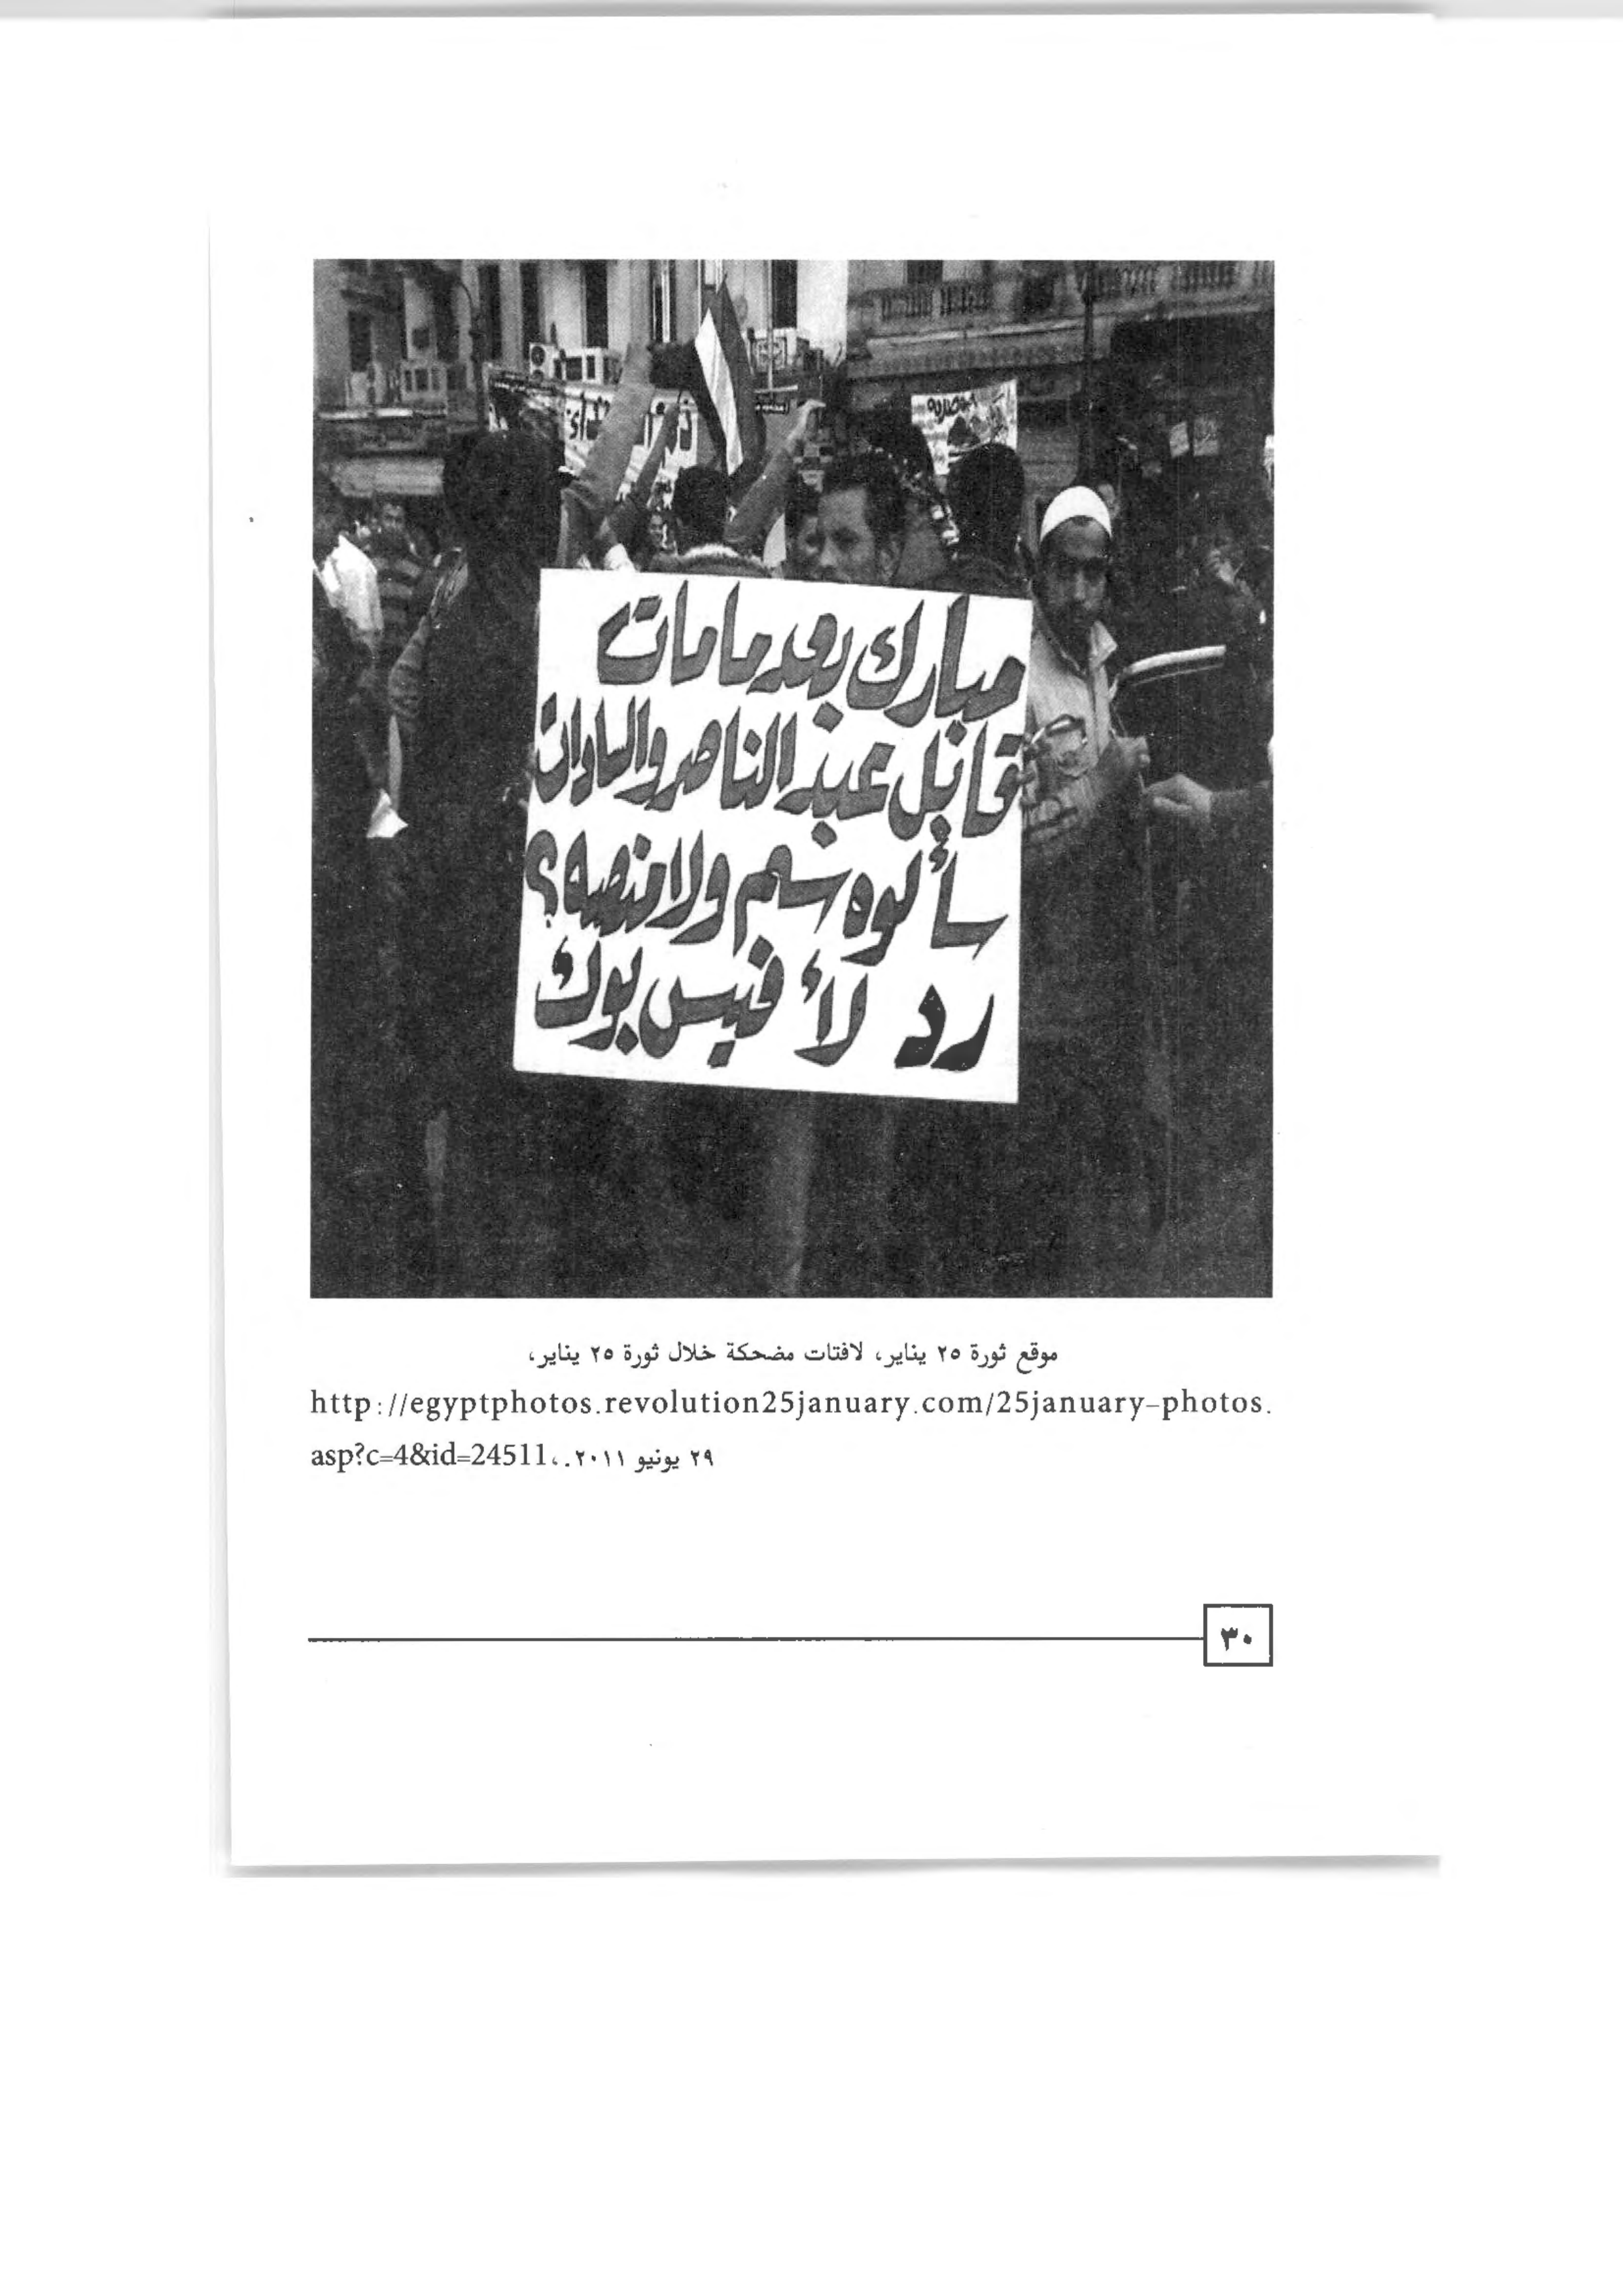 مبارك بعد ما مات
قابل عبد الناصر والسادات
سألوه سم ولا منصه؟
رد لأ فيس بوك
موقع ثورة ٢٥ يناير، لافتات مضحكة خلال ثورة ٢٥ يناير،
http://egyptphotos.revolution25january.com/25january-photos.
asp?c=4&id=24511، ٢٩ يونيو ٢٠١١.
٣٠